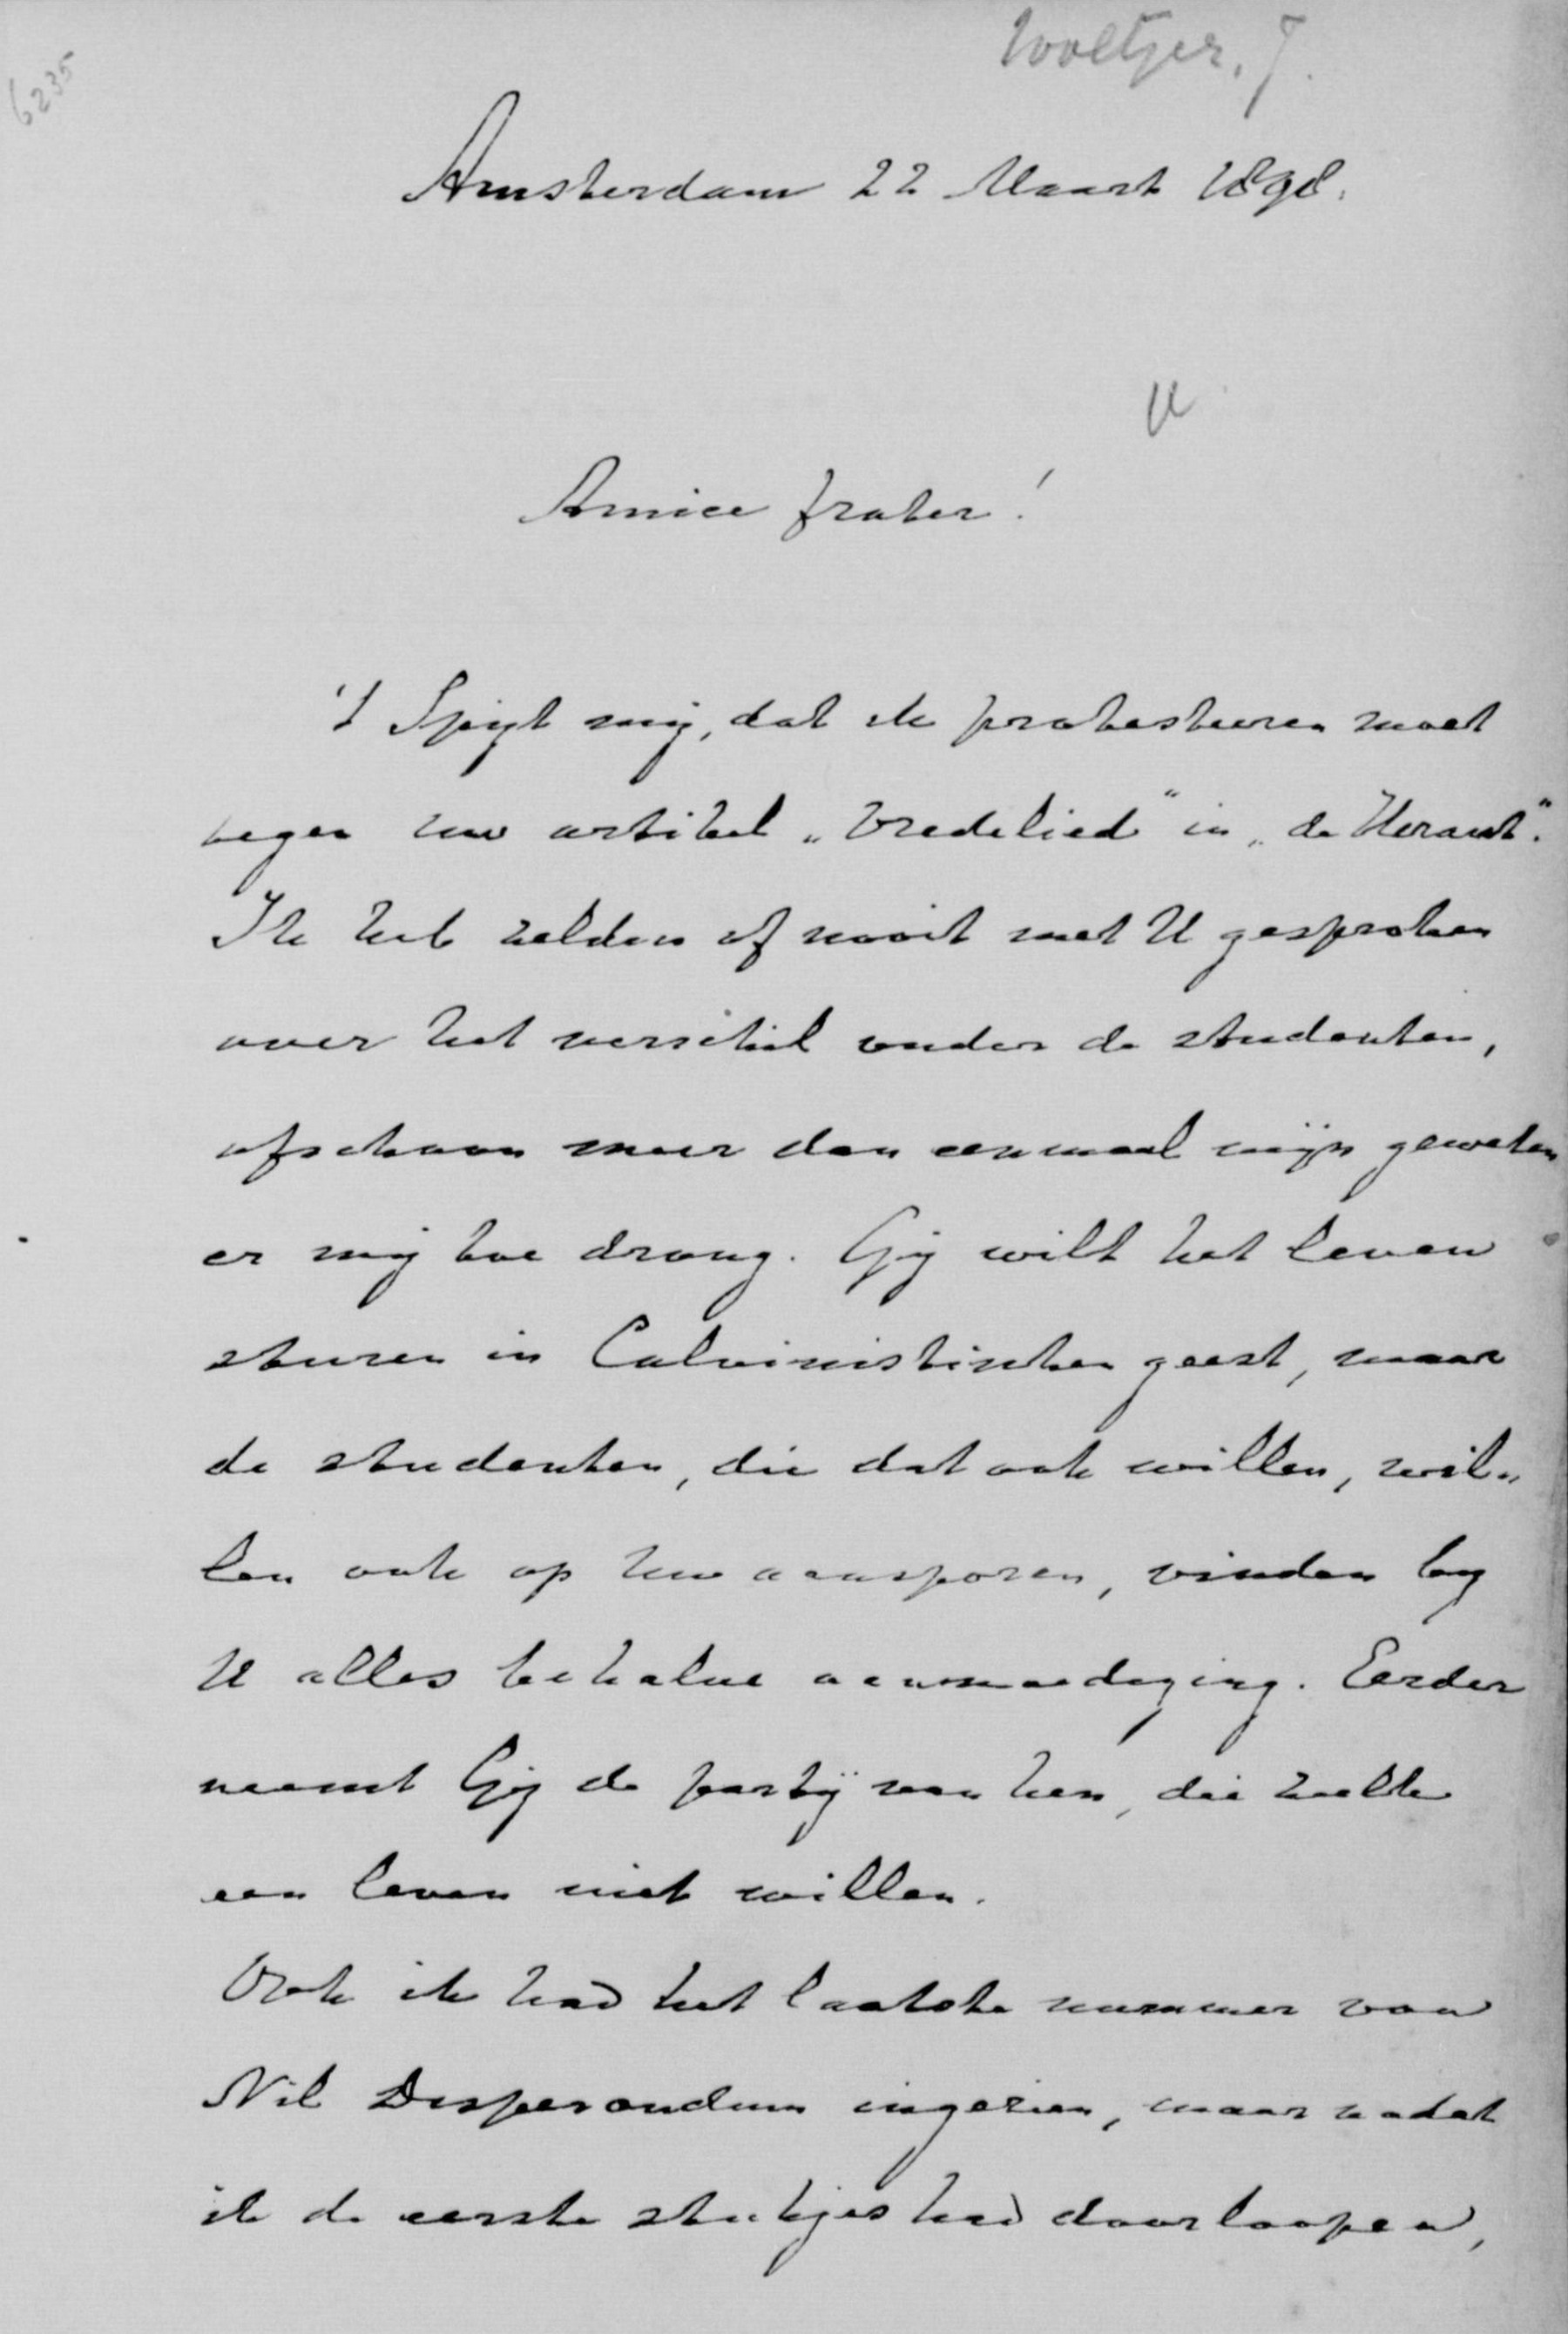 6235
Woltjer, J.
Amsterdam 22 Maart 1898.
Amice frater!
't Spijt mij, dat ik protesteeren moet
tegen uw artikel „Vredelied" in „de Heraut".
Ik heb zelden of nooit met U gesproken
over het verschil onder de studenten,
ofschoon meer dan eenmaal mijn geweten
er mij toe drong. Gij wilt het leven
sturen in Calvinistischen geest, maar
de studenten, die dat ook willen, wil„
len ook op uw aansporen, vinden bij
U alles behalve aanmoediging. Eerder
neemt Gij de partij van hen, die zulk
een leven niet willen.
Ook ik had het laatste nummer van
Nil Desperandum ingezien, maar nadat
ik de eerste stukjes had doorloopen,